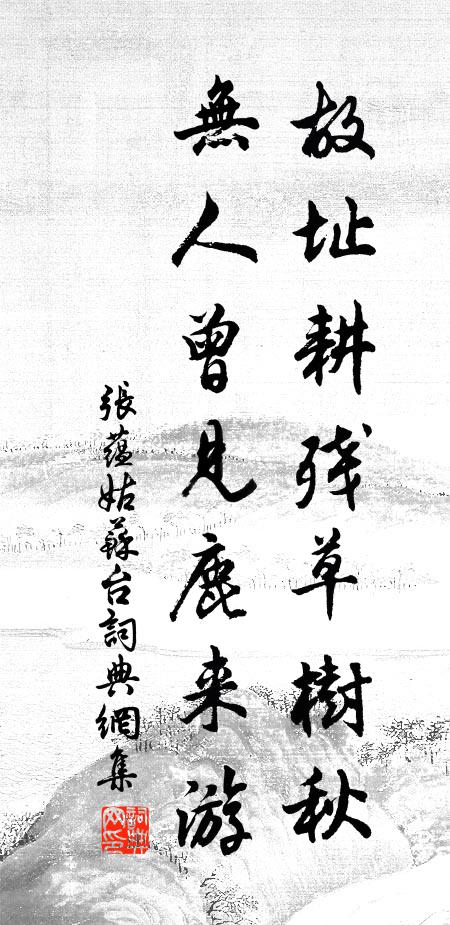 故址耕残草樹秋
無人曾見鹿来游
張蘊姑蘇台詞典網集